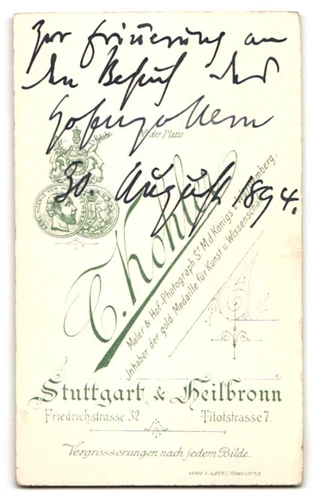 Zur Erinnerung an
den Besuch des
Hohenzollern
30. August 1894.
der Platte
C. Kohler
Maler & Hof-Photograph Sr. Md. Königs Württemberg.
Inhaber der gold. Medaille für Kunst u. Wissenschaft
Stuttgart & Heilbronn
Friedrichstrasse 32 Titotstrasse 7.
Vergrösserungen nach jedem Bilde.